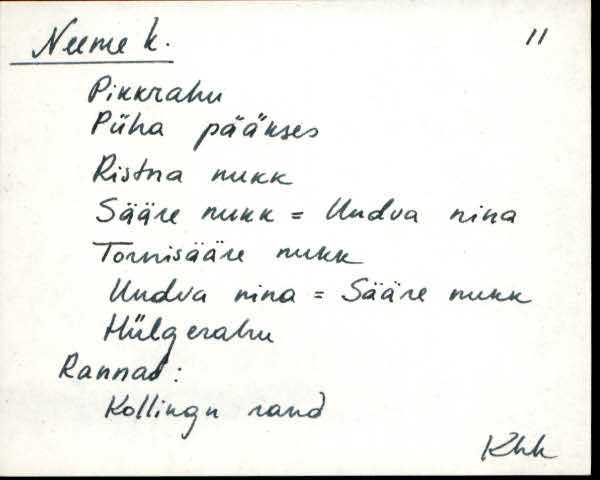 Neeme k. 11
Pikkrahu
Püha pääkses
Ristna nukk
Sääre nukk = Undva nina
Tornisääre nukk
Undva nina = Sääre nukk
Hülgerahu
Rannad:
Kollingu rand
Khk